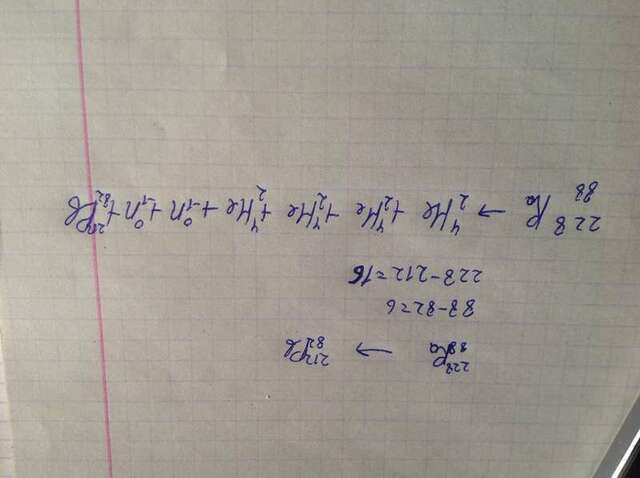 ²²⁸₈₈Ra → ²¹²₈₂Pb
88-82=6
228-212=16
²²⁸₈₈Ra → ⁴₂He + ⁴₂He + ⁴₂He + ⁴₂He + ⁰₋₁n + ⁰₋₁n + ²¹²₈₂Pb